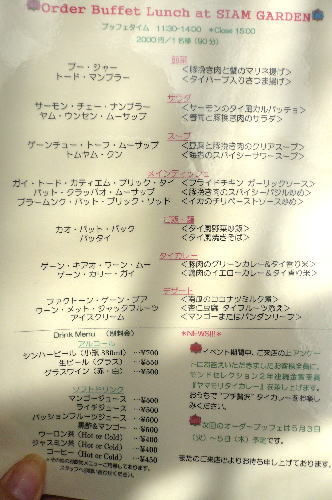 Order Buffet Lunch at SIAM GARDEN
ブッフェタイム 11:30-14:00 *Close 15:00
2000円/1名様 (90分)
前菜
プー・ジャー <豚挽き肉と蟹のマリネ揚げ>
トード・マンプラー <タイハーブ入りさつま揚げ>
サラダ
サーモン・チェー・ナンプラー <サーモンのタイ風カルパッチョ>
ヤム・ウンセン・ムーサップ <春雨と豚挽き肉のサラダ>
スープ
ゲーンチュー・トーフ・ムーサップ <豆腐と豚挽き肉のクリアスープ>
トムヤム・クン <海老のスパイシーサワースープ>
メインディッシュ
ガイ・トード・カティエム・プリック・タイ <フライドチキン ガーリックソース>
パット・クラッパオ・ムーサップ <豚挽き肉のスパイシーバジル炒め>
プラームンク・パット・プリック・ソッド <イカのチリペーストソース炒め>
ご飯・麺
カオ・パット・パック <タイ風野菜炒飯>
パッタイ <タイ風焼きそば>
タイカレー
ゲーン・キアオ・ワーン・ムー <豚肉のグリーンカレー&タイ香り米>
ゲーン・カリー・ガイ <鶏肉のイエローカレー&タイ香り米>
デザート
ファクトーン・ゲーン・ブア <南瓜のココナツミルク煮>
ワーン・メット・ジャックフルーツ <杏仁豆腐 タイフルーツ添え>
アイスクリーム <マンゴーまたはパンダンリーフ>
Drink Menu (別料金)
アルコール
シンハービール (小瓶 330ml) …¥700
生ビール (グラス) …¥550
グラスワイン (赤・白) …¥550
ソフトドリンク
マンゴージュース …¥500
ライチジュース …¥500
パッションフルーツジュース …¥500
黒酢&マンゴー …¥500
ウーロン茶 (Hot or Cold) …¥400
ジャスミン茶 (Hot or Cold) …¥400
コーヒー (Hot or Cold) …¥450
*その他の飲物メニューご用意しております。
スタッフへお問い合わせください。
*NEWS!!*
イベント期間中、ご来店の上アンケー
トにお答えいただきましたお客様全員に、
モンドセレクション2年連続金賞受賞
『ヤマモリタイカレー』を差し上げます。
おうちで"プチ贅沢"タイカレーをお楽し
みください。
次回のオーダーブッフェは5月3日
(火)~5日(木)予定です。
またのご来店心よりお待ち申し上げております。